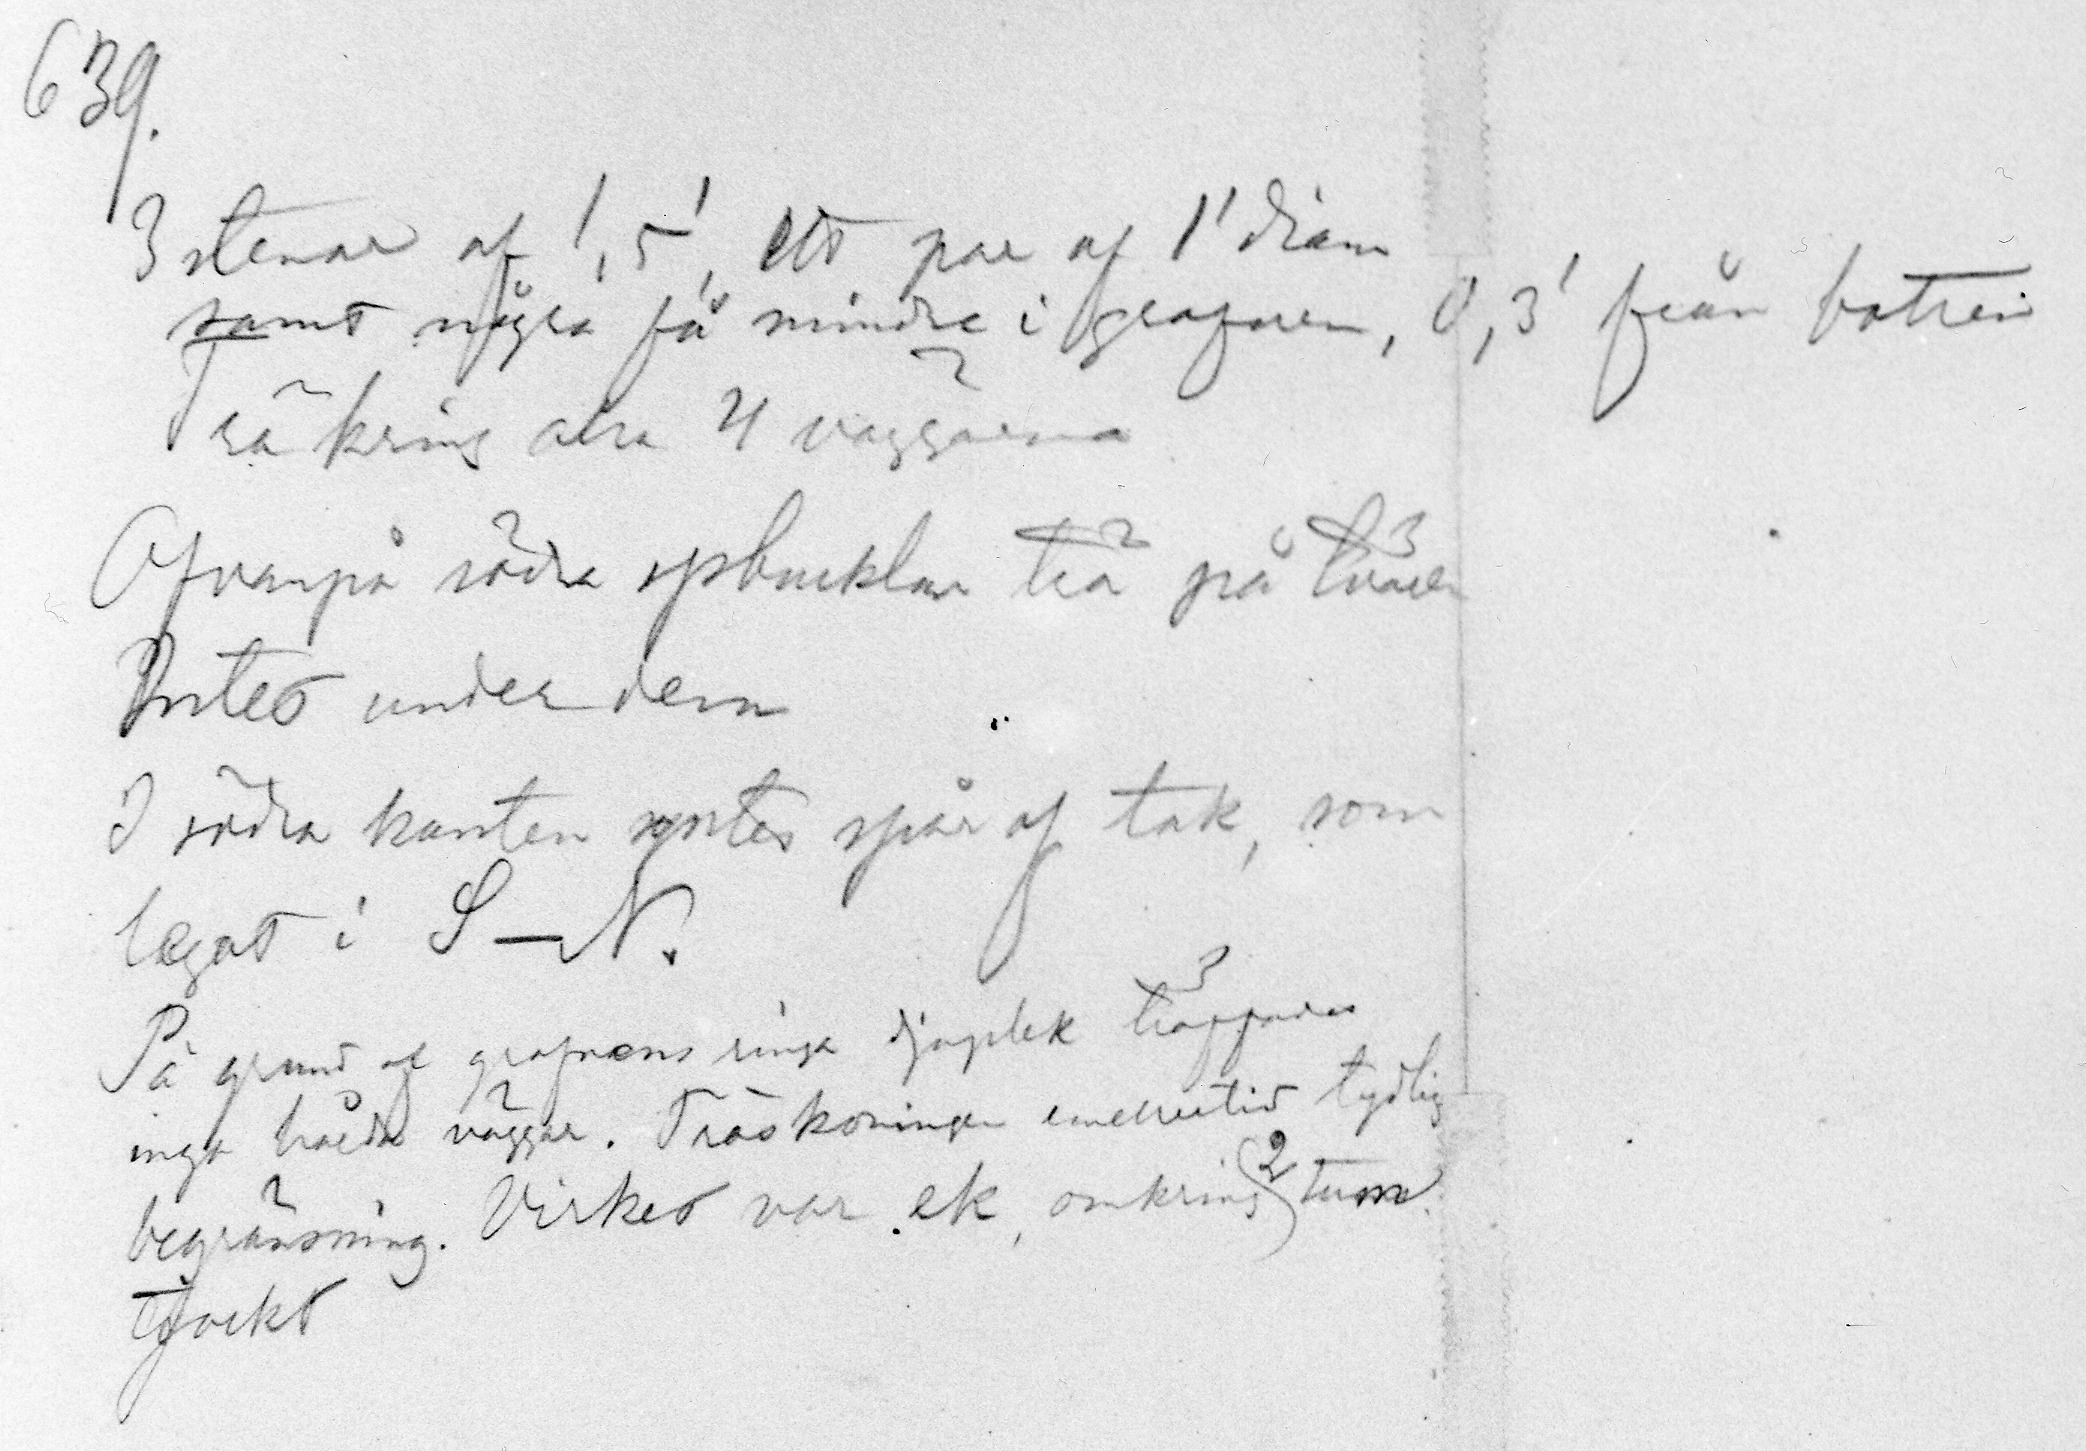 639.
3 stenar af 1,5', ett par af 1' diam
samt några få mindre i grafven, 0,3' från botten
Trä kring alla 4 väggarna
Ofvanpå södra spbucklan trä på tvären
Intet under dem
I södra kanten syntes spår af tak, som
legat i S—N.
På grund af grafvens ringa djuplek träffades
inga hårda väggar. Träskoningen emellertid tydlig
begränsning. Virket var ek, omkring 2 tum
tjockt